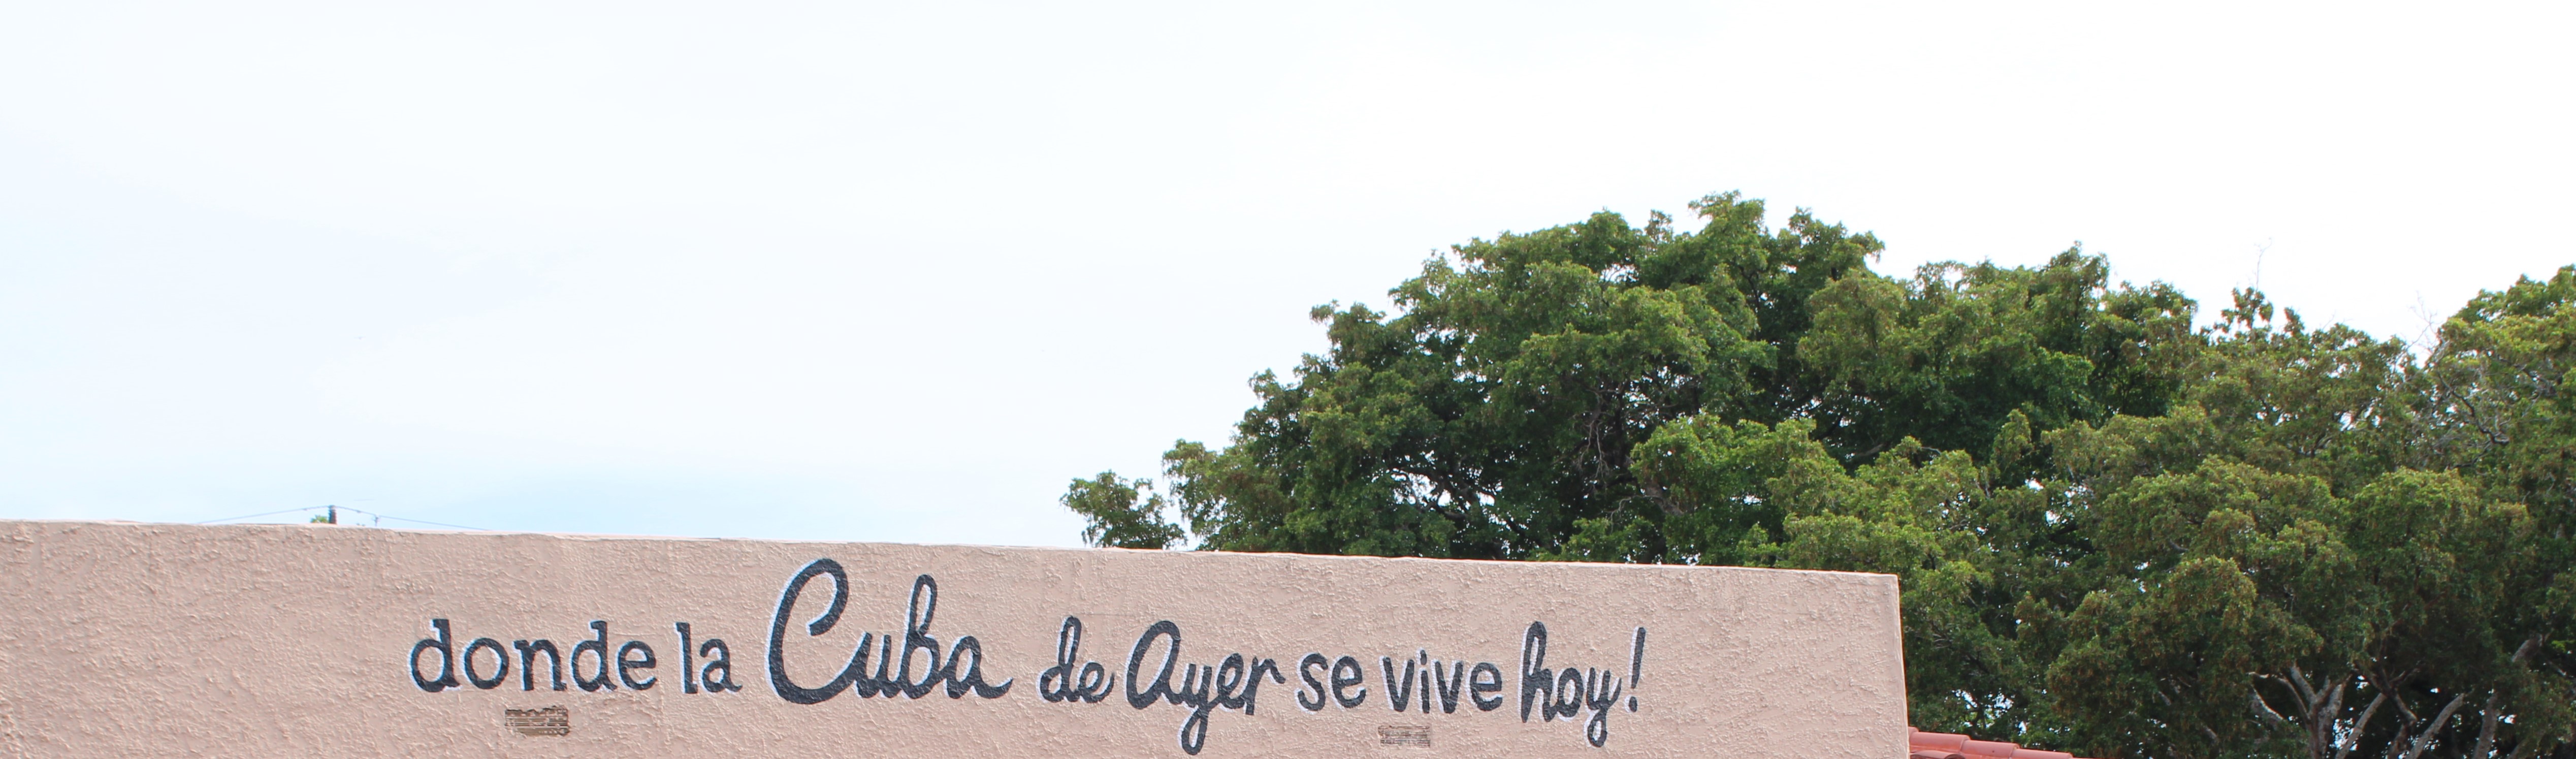 donde la Cuba de Ayer se vive hoy!